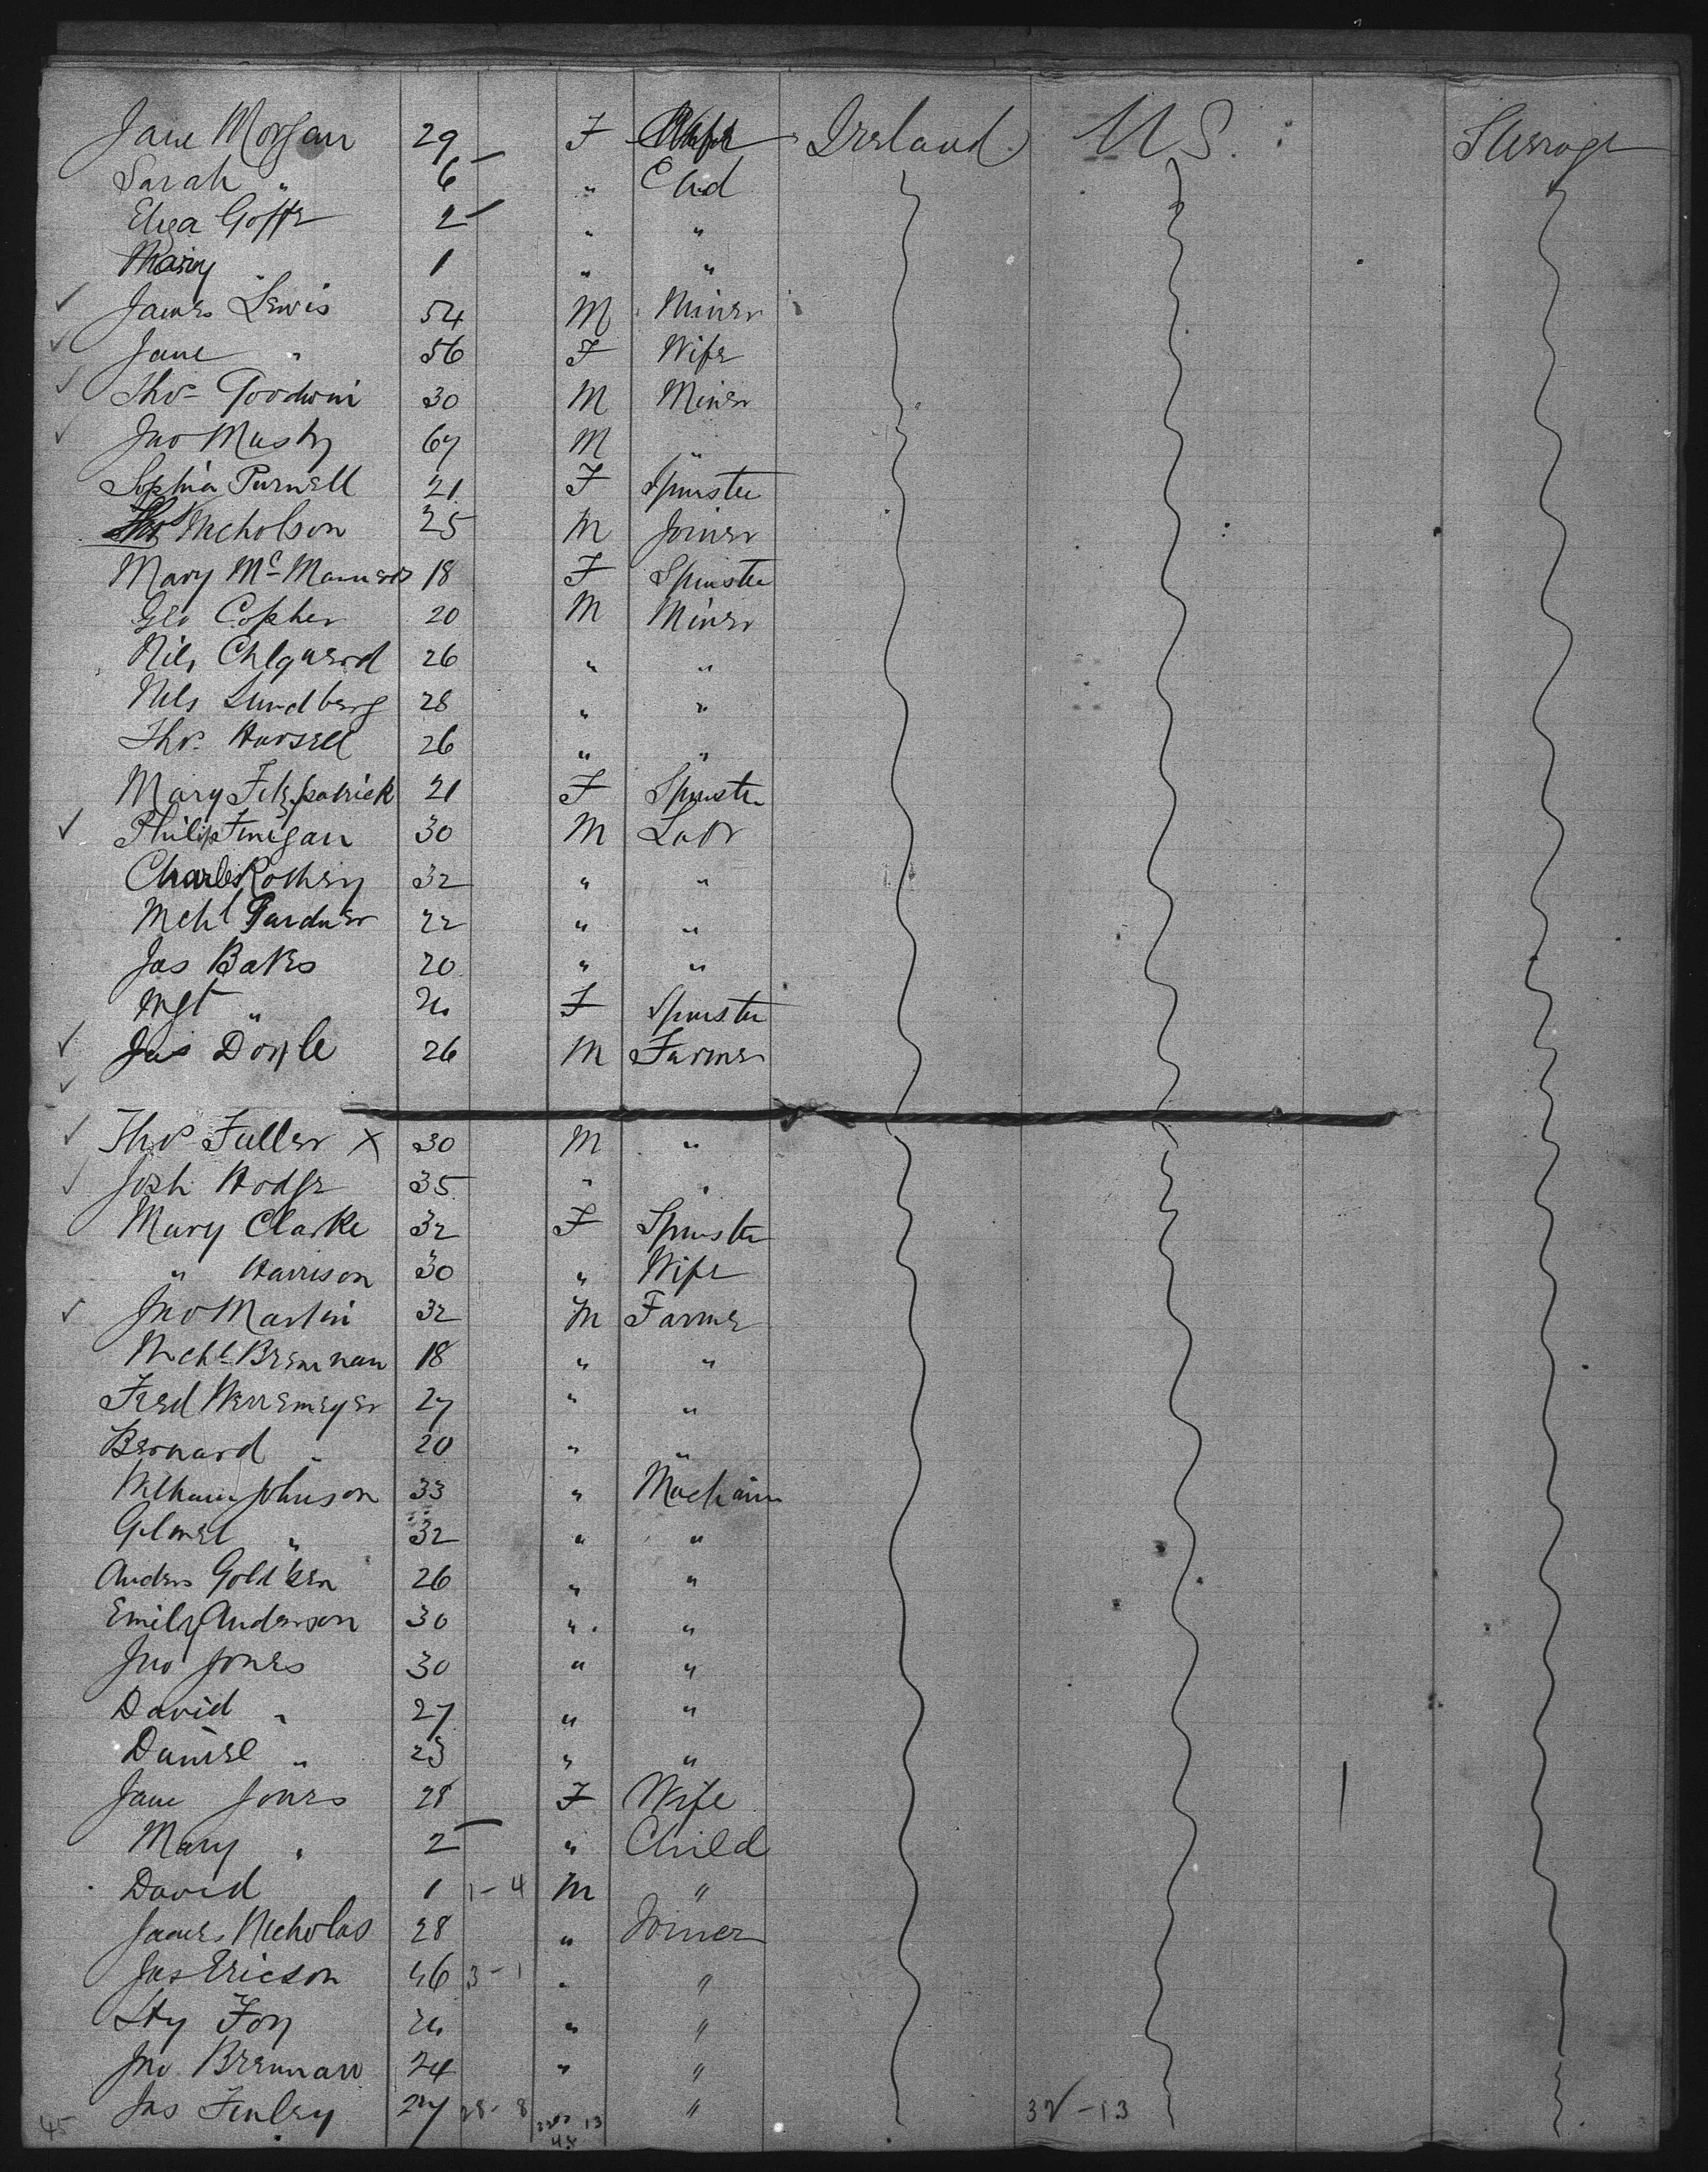 Jane Morgan 29 F Wife Ireland U S. Steerage
Sarah " 6 " Chd
Eliza Goffe 2 " "
Mary " 1 " "
James Lewis 54 M Miner
Jane " 56 F Wife
Thos Goodwin 30 M Miner
Jno Musty 67 M "
Sophia Purnell 21 F Spinster
Thos Nicholson 25 M Joiner
Mary Mc Manners 18 F Spinster
Geo Copher 20 M Miner
Nils 26 " "
Nils Lundberg 28 " "
Thos Hursell 26 " "
Mary Fitzpatrick 21 F Spinster
Philip Finigan 30 M Labr
Charles Rothery 32 " "
Mchl Gardner 22 " "
Jas Bakes 20 " "
Mgt " 20 F Spinster
Jas Doyle 26 M Farmer
Thos Fuller X 30 M "
Josh Hodge 35 " "
Mary Clarke 32 F Spinster
" Harrison 30 " Wife
Jno Martin 32 M Farmer
Mchl Brennan 18 " "
Fred Werremeyer 27 " "
Bernard " 20 " "
William Johnson 33 " Mechanic
32 " "
Anders 26 " "
Emily Anderson 30 " "
Jno Jones 30 " "
David " 27 " "
Daniel " 23 " "
Jane Jones 28 F Wife
Mary " 2 " Child
David 1 1-4 M "
James Nicholas 28 " Joiner
Jas Ericson 46 3-1 " "
Hy Foy 20 " "
Jno Brennan 24 " "
Jas Finley 27 28-8 13 " 32-13
45